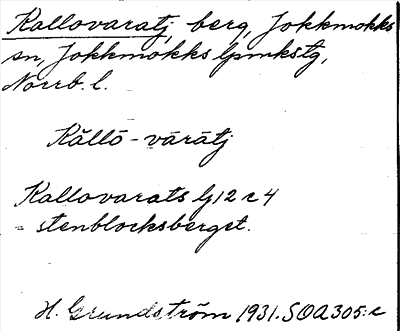 Kallovaratj, berg, Jokkmokks
sn, Jokkmokks lpmkstg,
Norrb. l.
Kăllō-vărătj
Kallovarats G12 r 4
= stenblocksberget.
H. Grundström 1931. SOA 305:c